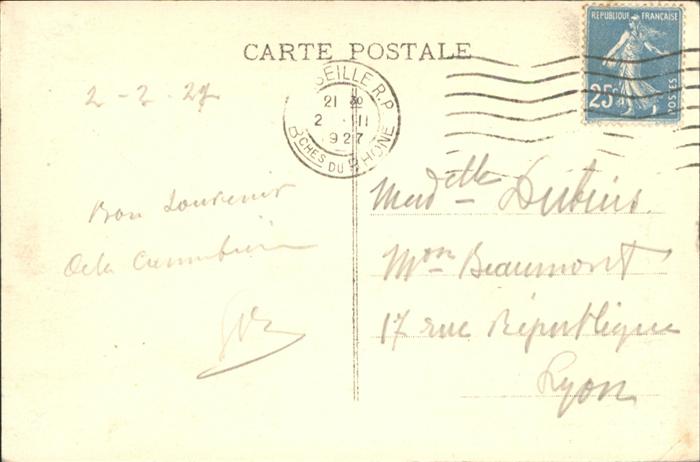 CARTE POSTALE
RÉPUBLIQUE FRANÇAISE
25c
POSTES
MARSEILLE R.P
21 30
2 - II
1927
BCHES DU RHONE
2 - 2. 27
Bon souvenir
de la Cannebière
Madelle Dubius
Mon Beaumont
17 rue République
Lyon